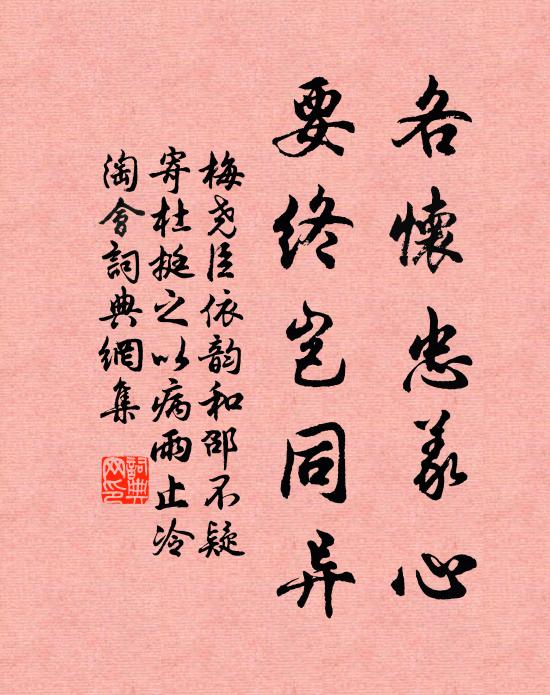 各懷忠義心
要終岂同异
梅尧臣依韵和邵不疑
寄杜挺之以病雨止冷
淘會詞典網集
詞典網印